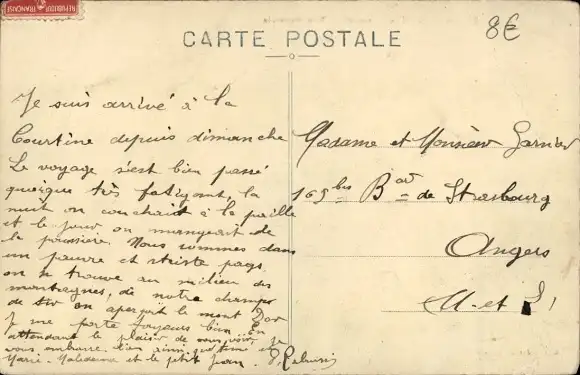 RÉPUBLIQUE FRANÇAISE
8€
CARTE POSTALE
Je suis arrivé à la
Courtine depuis dimanche
Le voyage s'est bien passé
quoique très fatigant, la
nuit on couchait à la paille
et le jour on mangeait de
la poussière. Nous sommes dans
un pauvre et triste pays
on se trouve au milieu des
montagnes, de notre champ
de tir on aperçoit le mont Dor
Je me porte toujours bien. En
attendant le plaisir de vous voir, je
vous embrasse bien ainsi que
Marie-Madeleine et le petit Jean.
Madame et Monsieur Garnier
165 bis Bard de Strasbourg
Angers
M-et L